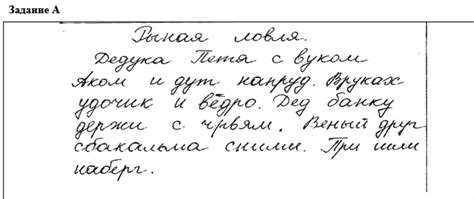 Задание А
Рыная ловля.
Дедука Петя с вуком
Аком и дут напруд. Вруках
удочик и вёдро. Дед банку
держи с чрвям. Веный друг
сбакальма сними. При шли
наберг.